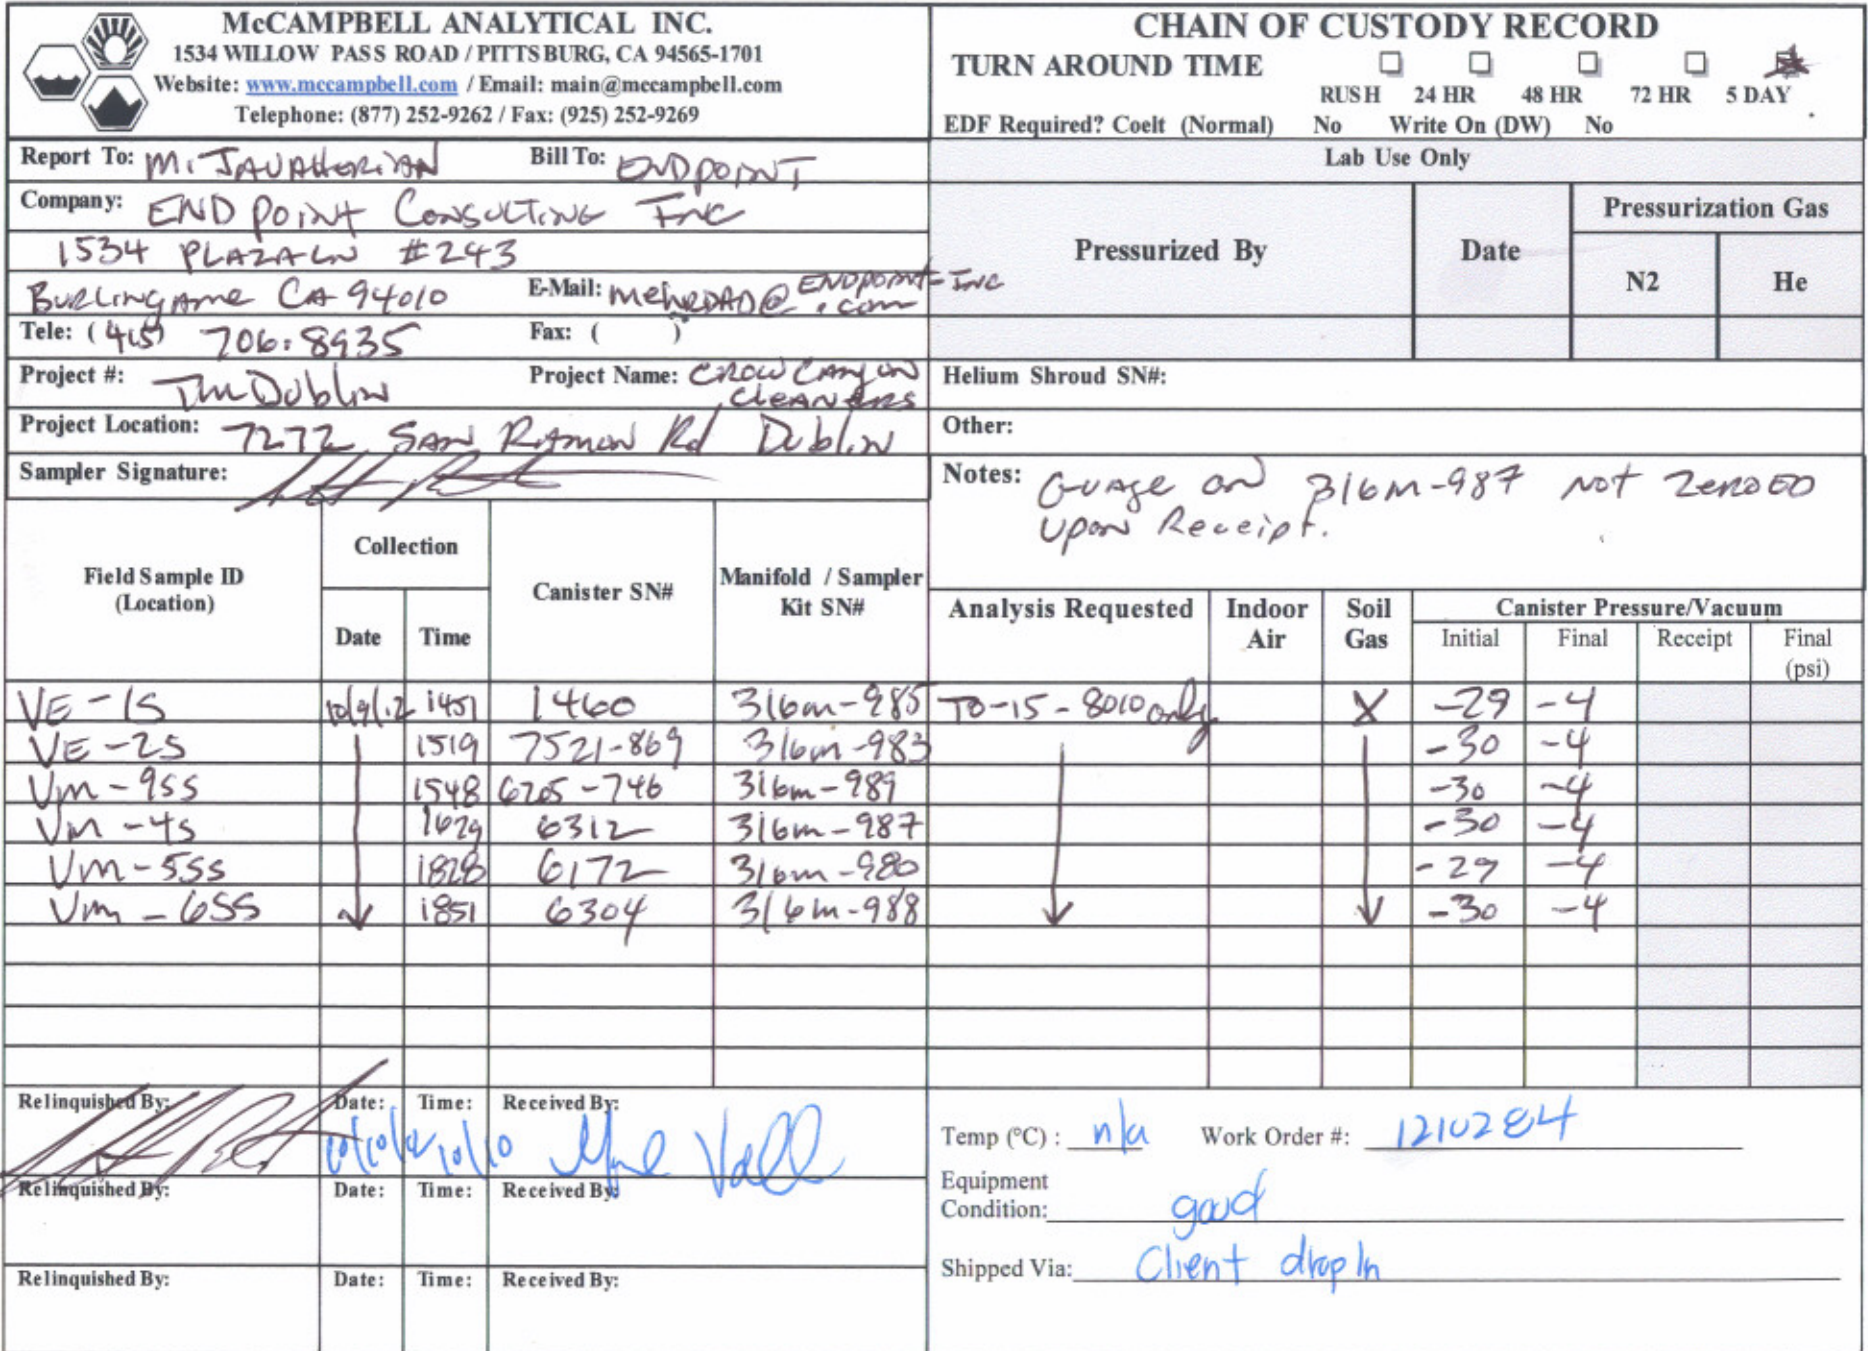 McCAMPBELL ANALYTICAL INC.
1534 WILLOW PASS ROAD / PITTSBURG, CA 94565-1701
Website: www.mccampbell.com / Email: main@mccampbell.com
Telephone: (877) 252-9262 / Fax: (925) 252-9269
CHAIN OF CUSTODY RECORD
TURN AROUND TIME
RUSH 24 HR 48 HR 72 HR 5 DAY
EDF Required? Coelt (Normal) No Write On (DW) No
Report To: M. JAVAHERIAN Bill To: ENDPOINT
Company: ENDPOINT CONSULTING INC
1534 PLAZA LN #243
BURLINGAME CA 94010 E-Mail: MEHRDAD@ENDPOINT-INC.com
Tele: (415) 706-8935 Fax: ( )
Project #: TM Dublin Project Name: CROW CANYON CLEANERS
Project Location: 7272 SAN RAMON Rd Dublin
Sampler Signature:
Lab Use Only
Pressurized By Date Pressurization Gas
N2 He
Helium Shroud SN#:
Other:
Notes: GUAGE ON 316M-987 NOT ZEROED
UPON Receipt.
Field Sample ID (Location) Collection Canister SN# Manifold / Sampler Kit SN# Analysis Requested Indoor Air Soil Gas Canister Pressure/Vacuum
Date Time Initial Final Receipt Final (psi)
VE-1S 10/9/12 1451 1460 316m-985 TO-15-8010 only X -29 -4
VE-2S 1519 7521-869 316m-983 -30 -4
Vm-9SS 1548 6205-746 316m-989 -30 -4
Vm-4S 1629 6312 316m-987 -30 -4
Vm-5SS 1828 6172 316m-980 -29 -4
Vm-6SS 1851 6304 316m-988 -30 -4
Relinquished By: Date: Time: Received By:
10/10/12 1010
Relinquished By: Date: Time: Received By:
Relinquished By: Date: Time: Received By:
Temp (°C) : n/a Work Order #: 1210284
Equipment
Condition: good
Shipped Via: Client drop In